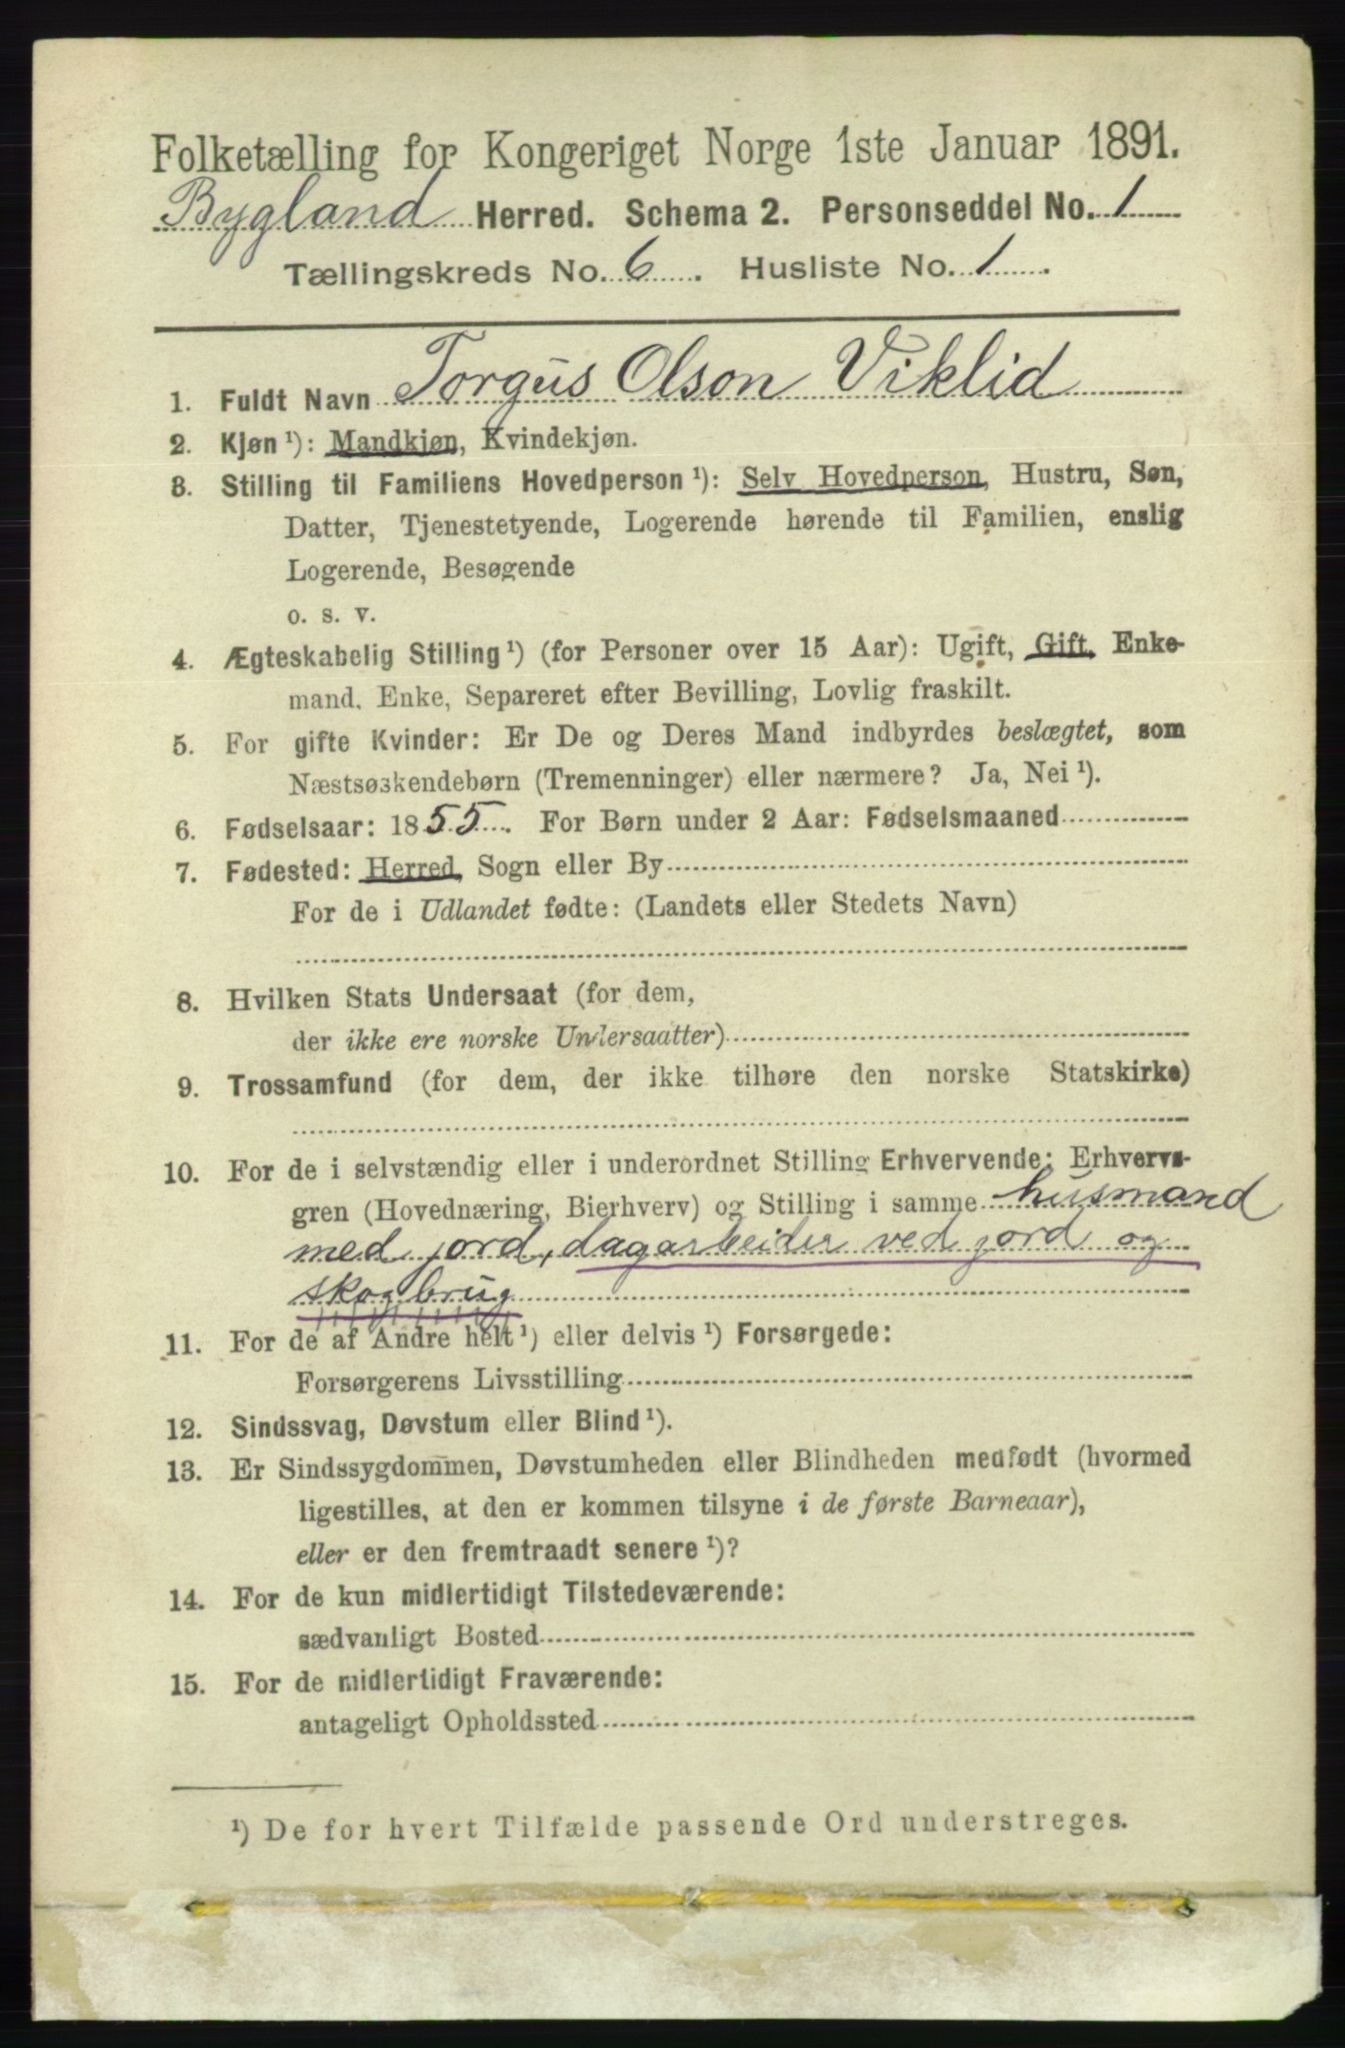 Folketælling for Kongeriget Norge 1ste Januar 1891.
Bygland Herred. Schema 2. Personseddel No. 1
Tællingskreds No. 6. Husliste No. 1.
1. Fuldt Navn Torgus Olson Viklid
2. Kjøn ¹): Mandkjøn, Kvindekjøn.
3. Stilling til Familiens Hovedperson ¹): Selv Hovedperson, Hustru, Søn,
Datter, Tjenestetyende, Logerende hørende til Familien, enslig
Logerende, Besøgende
o. s. v.
4. Ægteskabelig Stilling ¹) (for Personer over 15 Aar): Ugift, Gift, Enke-
mand, Enke, Separeret efter Bevilling, Lovlig fraskilt.
5. For gifte Kvinder: Er De og Deres Mand indbyrdes beslægtet, som
Næstsøskendebørn (Tremenninger) eller nærmere? Ja, Nei ¹).
6. Fødselsaar: 1855. For Børn under 2 Aar: Fødselsmaaned
7. Fødested: Herred, Sogn eller By
For de i Udlandet fødte: (Landets eller Stedets Navn)
8. Hvilken Stats Undersaat (for dem,
der ikke ere norske Undersaatter)
9. Trossamfund (for dem, der ikke tilhøre den norske Statskirke)
10. For de i selvstændig eller i underordnet Stilling Erhvervende: Erhvervs-
gren (Hovednæring, Bierhverv) og Stilling i samme husmand
med jord, dagarbeider ved jord og
skogbrug
11. For de af Andre helt ¹) eller delvis ¹) Forsørgede:
Forsørgerens Livsstilling
12. Sindssvag, Døvstum eller Blind ¹).
13. Er Sindssygdommen, Døvstumheden eller Blindheden medfødt (hvormed
ligestilles, at den er kommen tilsyne i de første Barneaar),
eller er den fremtraadt senere ¹)?
14. For de kun midlertidigt Tilstedeværende:
sædvanligt Bosted
15. For de midlertidigt Fraværende:
antageligt Opholdssted
¹) De for hvert Tilfælde passende Ord understreges.